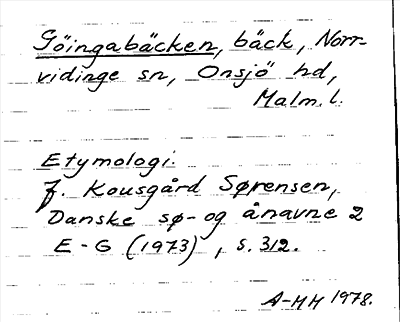 Göingabäcken, bäck, Norr-
vidinge sn, Onsjö hd,
Malm. l.
Etymologi.
J. Kousgård Sørensen,
Danske sø- og ånavne 2
E-G (1973), s. 312.
A-MH 1978.